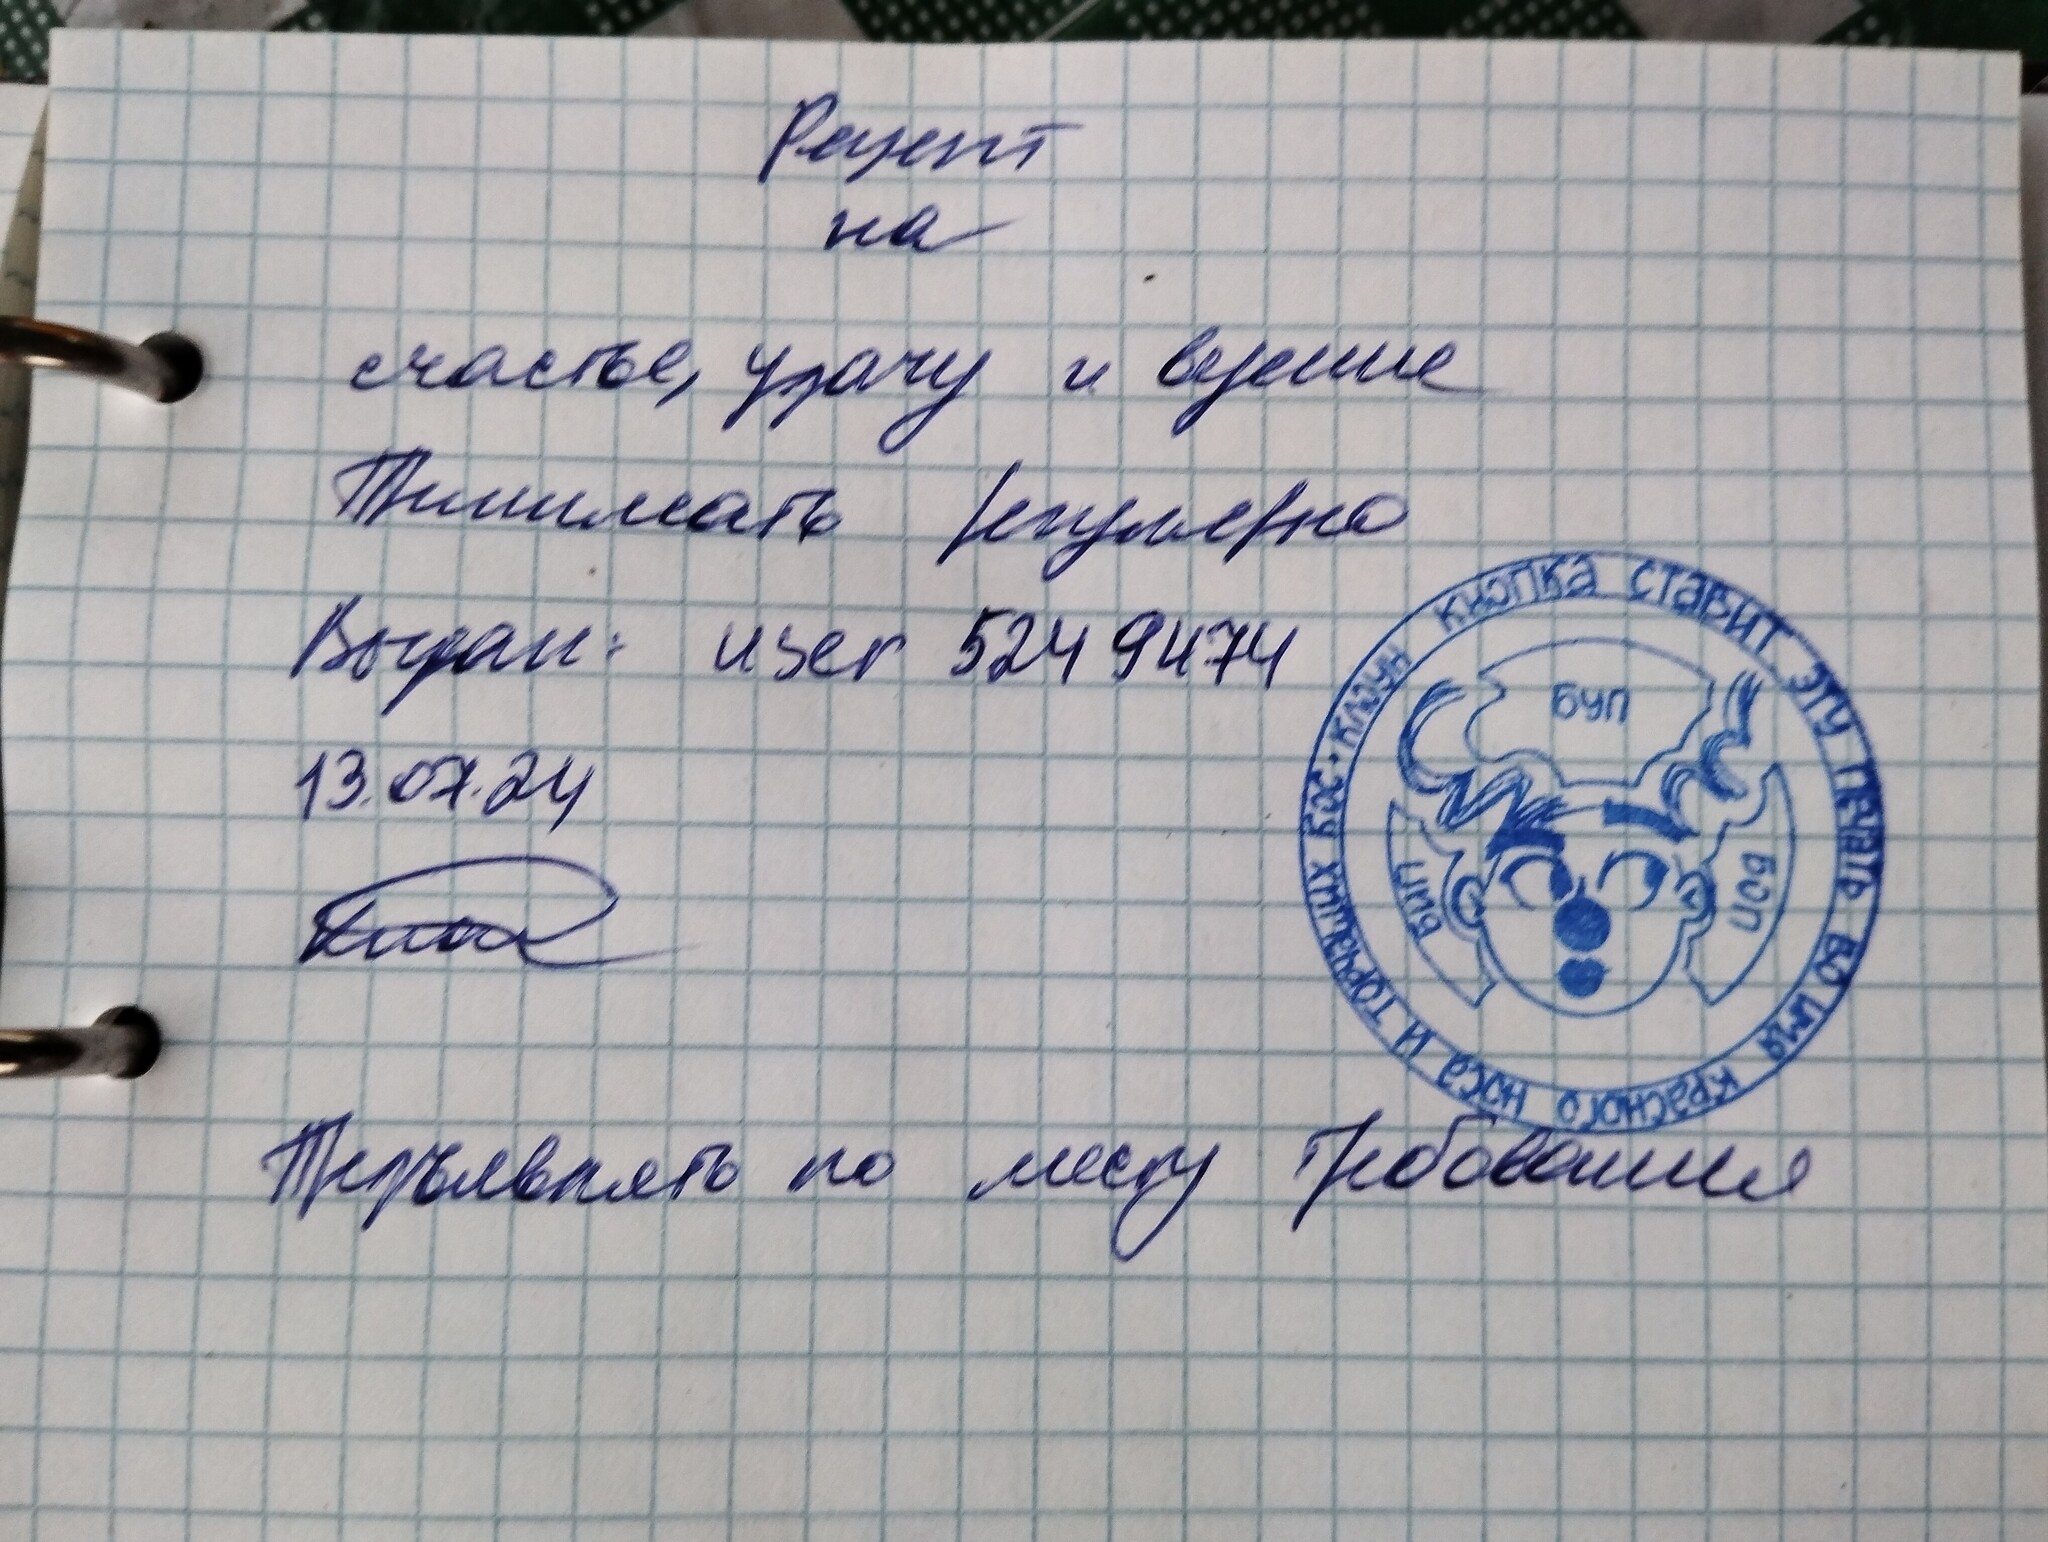 Рецепт
на
счастье, удачу и везение
Принимать регулярно
Выдан: user 5249474
13.07.24
Предъявлять по месту требования
КЛОУН КНОПКА СТАВИТ ЭТУ ПЕЧАТЬ ВО ИМЯ КРАСНОГО НОСА И ТОРЧАЩИХ ВОЛОС
БУП
БИП
БОП